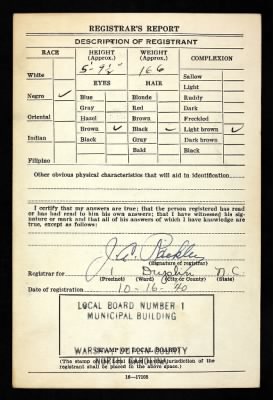 REGISTRAR'S REPORT
DESCRIPTION OF REGISTRANT
RACE HEIGHT (Approx.) WEIGHT (Approx.) COMPLEXION
White 5-9½" 166 Sallow
EYES HAIR Light
Negro ✓ Blue Blonde Ruddy
Gray Red Dark
Oriental Hazel Brown Freckled
Brown ✓ Black ✓ Light brown ✓
Indian Black Gray Dark brown
Bald Black
Filipino
Other obvious physical characteristics that will aid in identification
I certify that my answers are true; that the person registered has read
or has had read to him his own answers; that I have witnessed his sig-
nature or mark and that all of his answers of which I have knowledge are
true, except as follows:
(Signature of registrar)
Registrar for Duplin N.C.
(Precinct) (Ward) (City or County) (State)
Date of registration 10-16-40
LOCAL BOARD NUMBER 1
MUNICIPAL BUILDING
WARSAW, DUPLIN COUNTY
NORTH CAROLINA
(STAMP OF LOCAL BOARD)
(The stamp of the Local Board having jurisdiction of the
registrant shall be placed in the above space.)
16—17105